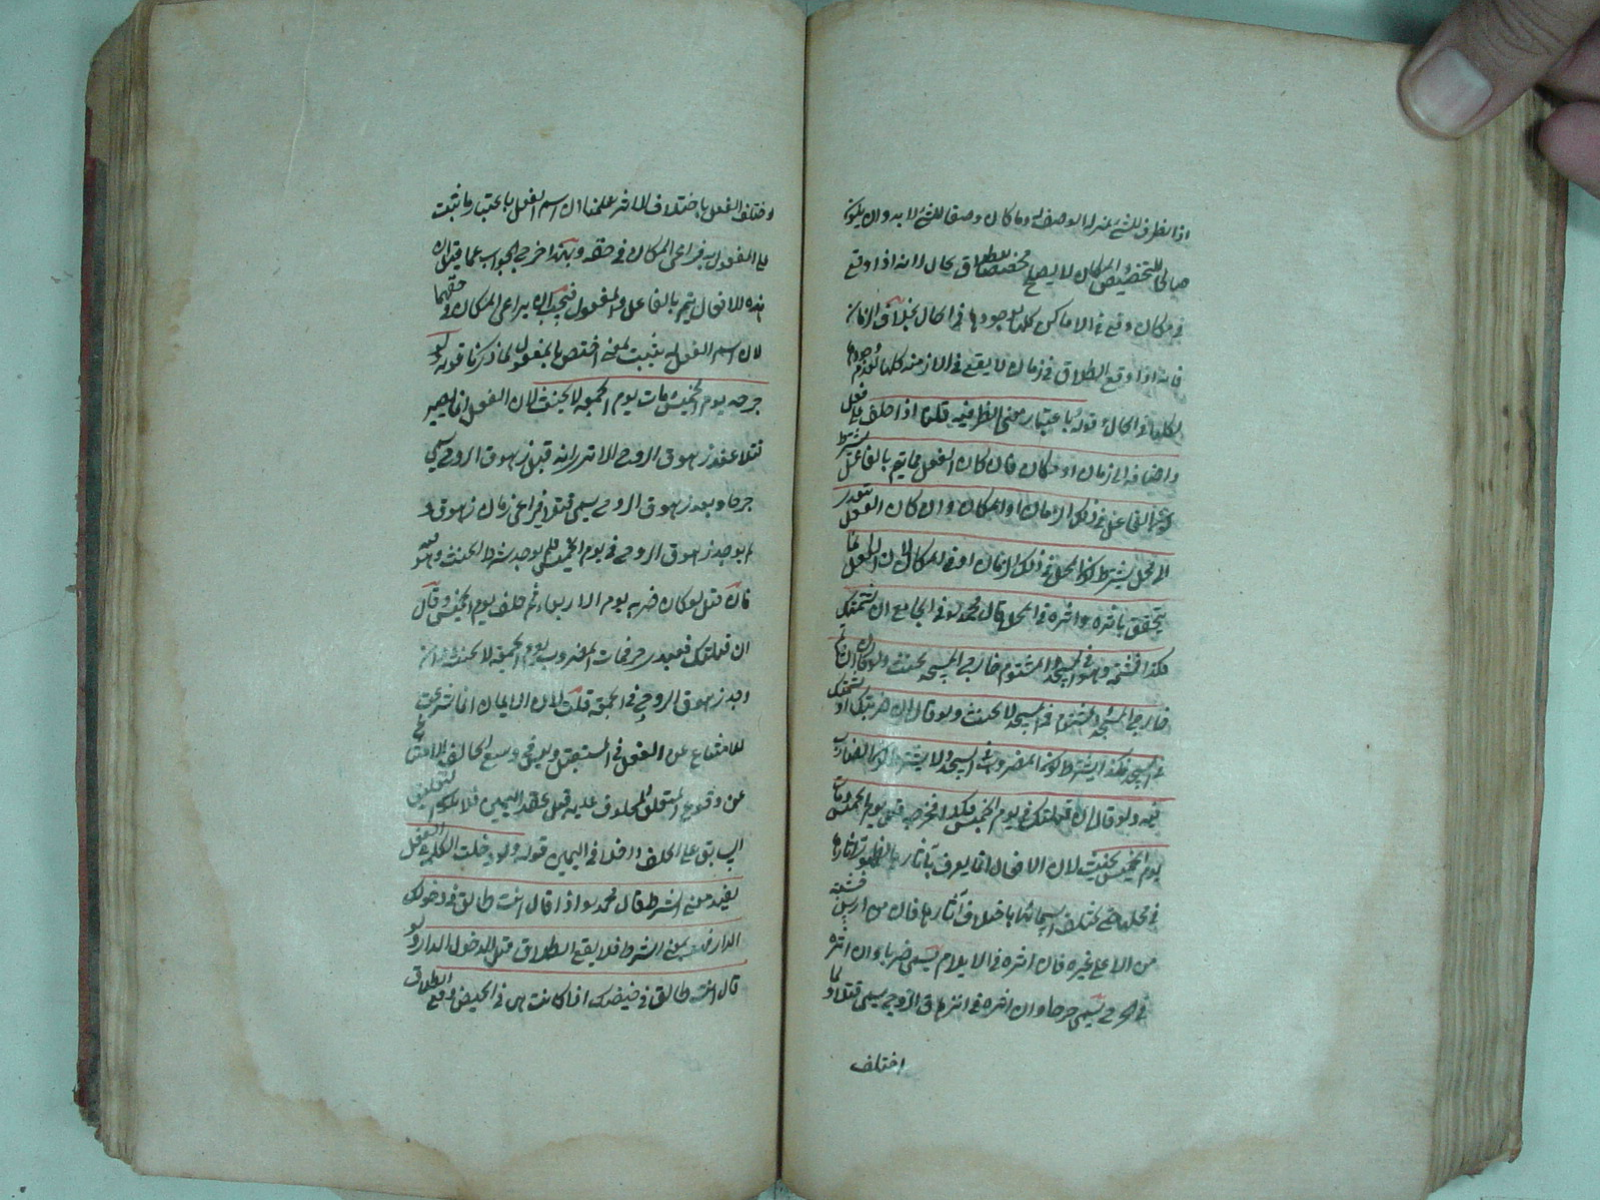 اذ الظرف للشئ بمنزلة الوصف له وما كان وصفا للشئ لا بد وان يكون
صالحا للتخصيص والمكان لا يصلح مخصصا للطلاق بحال لانه اذا وقع
في مكان وقع في الاماكن كلها لوجودها في الحال بخلاف الزمان
فانه اذا وقع الطلاق في زمان لا يقع في الازمنة كلها لعدم وجودها
كلها في الحال قوله باعتبار معنى الظرفية قلنا اذا حلف على فعل
واضافه الى زمان او مكان فان كان الفعل مما يتم بالفاعل يشترط
كون الفاعل في ذلك الزمان او المكان وان كان الفعل يتعدى
الى محل يشترط كون المحل في ذلك الزمان او في المكان لان الفعل انما
يتحقق باثره واثره في المحل قال محمد في الجامع ان شتمتك
فكذا فشتمه وهو في المسجد والمشتوم خارج المسجد يحنث ولو كان الشاتم
خارج المسجد والمشتوم في المسجد لا يحنث ولو قال ان ضربتك او شججتك
في المسجد فكذا يشترط كون المضروب في المسجد ولا يشترط كون الضارب
فيه ولو قال ان قتلتك في يوم الخميس فكذا فجرحه قبل يوم الخميس ومات
يوم الخميس يحنث لان الافعال انما يعرف بآثارها
في محلها حتى يختلف اسمائها باختلاف آثارها فان من ارسل خشبة
من الاعلى على غيره فان اثره في الايلام يسمى ضربا وان اثره
في الجرح يسمى جرحا وان اثره في انزهاق الروح يسمى قتلا ولما
اختلف
واختلف الفعل باختلاف الاثر علمنا ان اسم الفعل باعتبار ما ثبت
على المفعول به فيراعى المكان في حقه وبهذا خرج الجواب عما قيل ان
هذه الافعال يتم بالفاعل والمفعول فيجب ان يراعى المكان في حقهما
لان اسم الفعل يثبت لمعنى اختص بالمفعول لما ذكرنا قوله ولو
جرحه يوم الخميس ومات يوم الجمعة لا يحنث لان الفعل انما يصير
قتلا عند زهوق الروح الا ترى انه قبل زهوق الروح يسمى
جرحا وبعد زهوق الروح يسمى قتلا فيراعى زمان زهوق و
لم يوجد زهوق الروح في يوم الخميس فلم يوجد شرط الحنث وهو
فان قيل لو كان ضربه يوم الاربعاء ثم حلف يوم الخميس وقال
ان قتلتك فعبدي حر فمات المضروب يوم الجمعة لا يحنث وان
وجد زهوق الروح في الجمعة قلت لان الايمان انما شرعت
للامتناع عن الفعل في المستقبل وليس في وسع الحالف الامتناع
عن وقوع المتعلق المحلوف عليه قبل عقد اليمين فلا يكون التعليق
السابق على الحلف داخلا في اليمين قوله ولو دخلت الكلمة في الفعل
يفيد معنى الشرط قال محمد اذا قال انت طالق في دخولك
الدار فهو بمعنى الشرط فلا يقع الطلاق قبل الدخول الدار ولو
قال انت طالق في حيضك ان كانت هي في الحيض وقع الطلاق